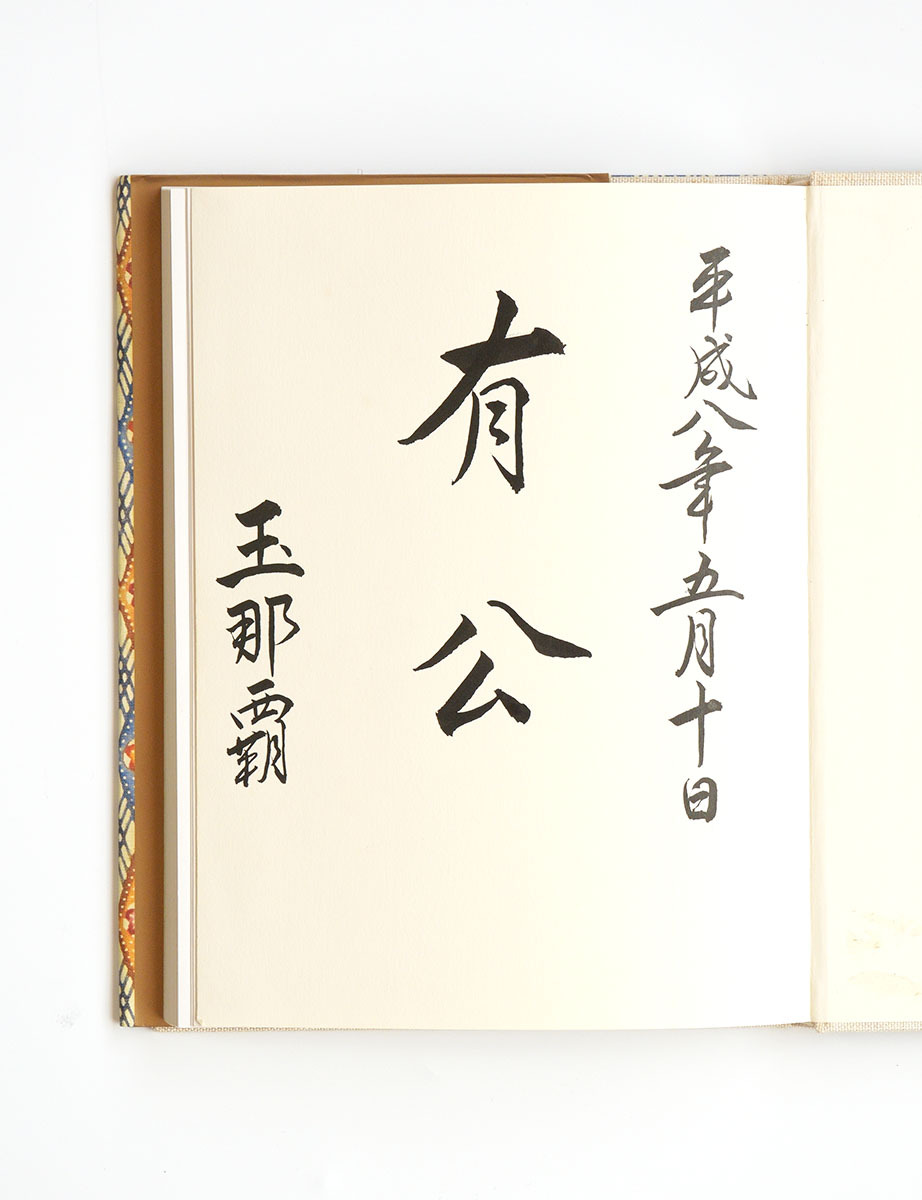 平成八年五月十日
有公
玉那覇